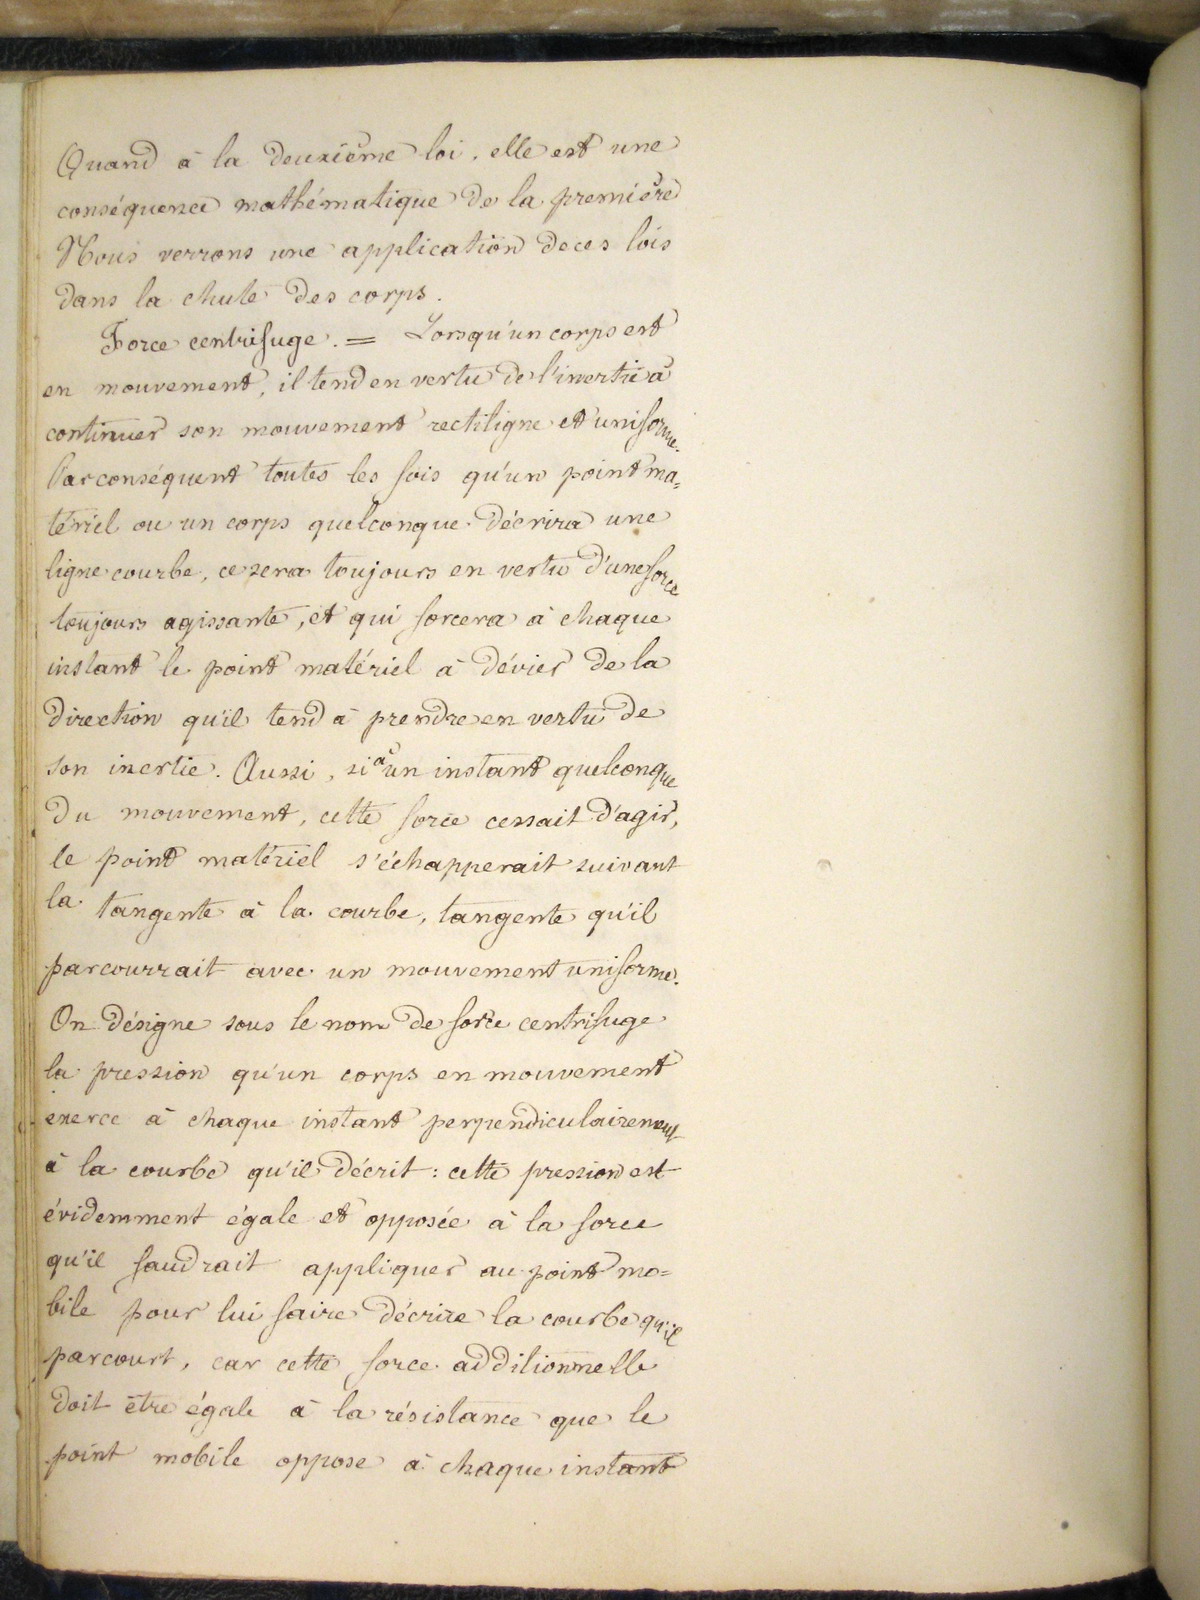 Quand à la deuxième loi, elle est une
conséquence mathématique de la première
Nous verrons une application de ces lois
dans la chute des corps.
Force centrifuge. = Lorsqu'un corps est
en mouvement, il tend en vertu de l'inertie à
continuer son mouvement rectiligne et uniforme.
Par conséquent toutes les fois qu'un point ma=
tériel ou un corps quelconque décrira une
ligne courbe, ce sera toujours en vertu d'une force
toujours agissante, et qui forcera à chaque
instant le point matériel à dévier de la
direction qu'il tend à prendre en vertu de
son inertie. Aussi, si à un instant quelconque
du mouvement, cette force cessait d'agir,
le point matériel s'échapperait suivant
la tangente à la courbe, tangente qu'il
parcourrait avec un mouvement uniforme.
On désigne sous le nom de force centrifuge
la pression qu'un corps en mouvement
exerce à chaque instant perpendiculairement
à la courbe qu'il décrit : cette pression est
évidemment égale et opposée à la force
qu'il faudrait appliquer au point mo=
bile pour lui faire décrire la courbe qu'il
parcourt, car cette force additionnelle
doit être égale à la résistance que le
point mobile oppose à chaque instant